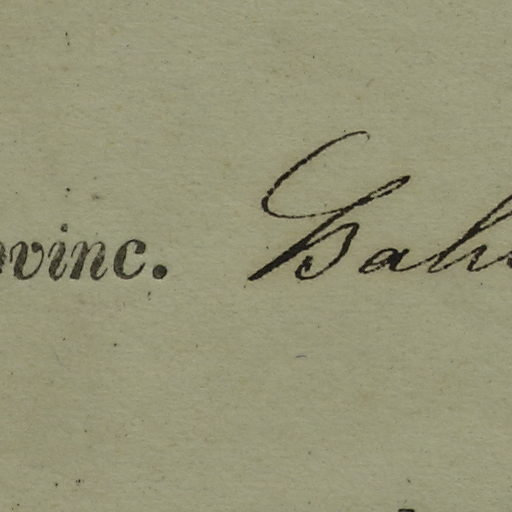 ovinc. Bah